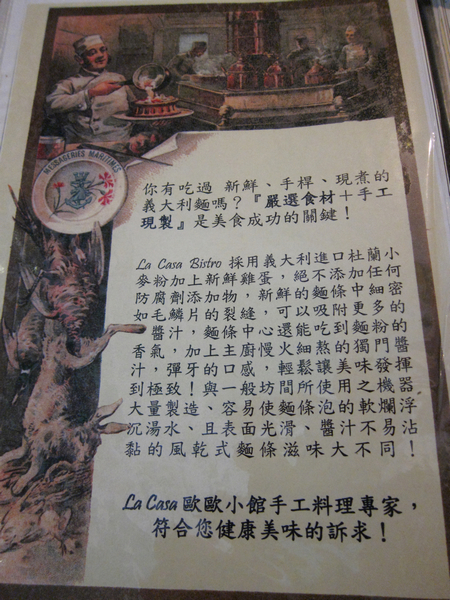 MESSAGERIES MARITIMES
你有吃過 新鮮、手桿、現煮的
義大利麵嗎？『嚴選食材＋手工
現製』是美食成功的關鍵！
La Casa Bistro 採用義大利進口杜蘭小
麥粉加上新鮮雞蛋，絕不添加任何
防腐劑添加物，新鮮的麵條中細密
如毛鱗片的裂縫，可以吸附更多的
醬汁，麵條中心還能吃到麵粉的
香氣，加上主廚慢火細熬的獨門醬
汁，彈牙的口感，輕鬆讓美味發揮
到極致！與一般坊間所使用之機器
大量製造、容易使麵條泡的軟爛浮
沉湯水、且表面光滑、醬汁不易沾
黏的風乾式麵條滋味大不同！
La Casa 歐歐小館手工料理專家，
符合您健康美味的訴求！